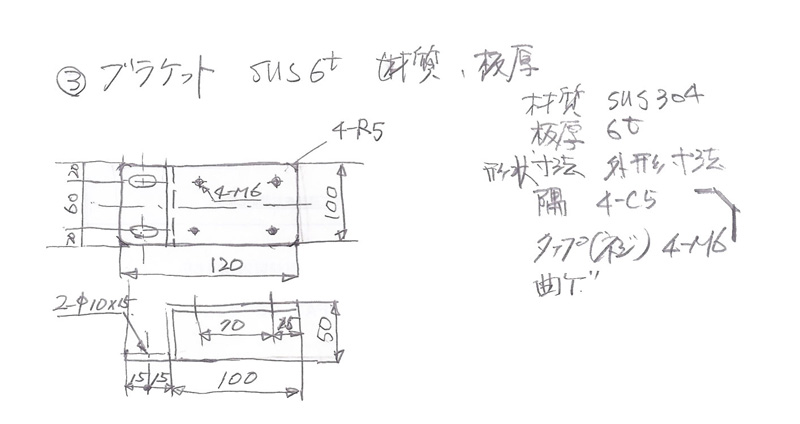 ③ ブラケット SUS6t 材質、板厚
材質 SUS304
板厚 6t
形状寸法 外形寸法
隅 4-C5
タップ(ネジ) 4-M6
曲げ
4-R5
20
60
20
4-M6
100
120
2-φ10×15
70
15
50
15 15
100